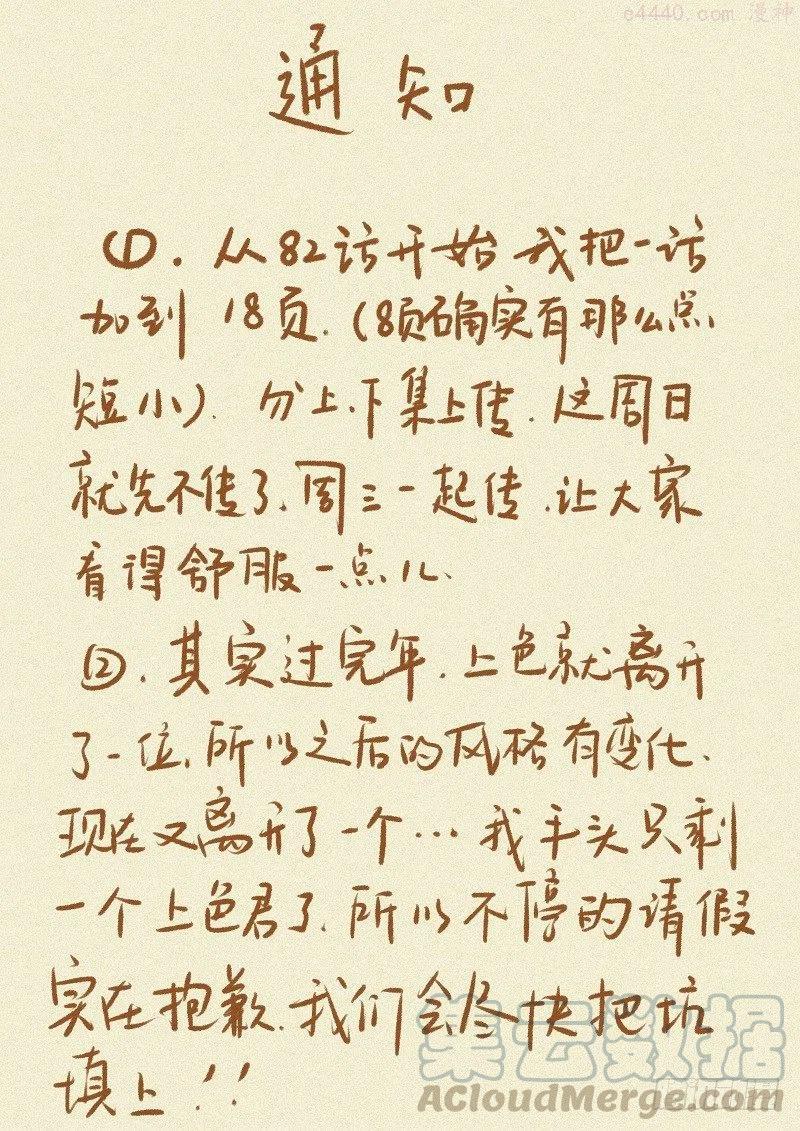 c4440.com 漫神
通知
①.从82话开始 我把一话
加到 18页.(8页确实有那么点
短小).分上、下集上传.这周日
就先不传了.周三一起传.让大家
看得舒服一点儿.
②.其实过完年.上色就离开
了一位,所以之后的风格有变化、
现在又离开了一个…我手头只剩
一个上色君了.所以不停的请假
实在抱歉.我们会尽快把坑
填上!!
集云数据
ACloudMerge.com